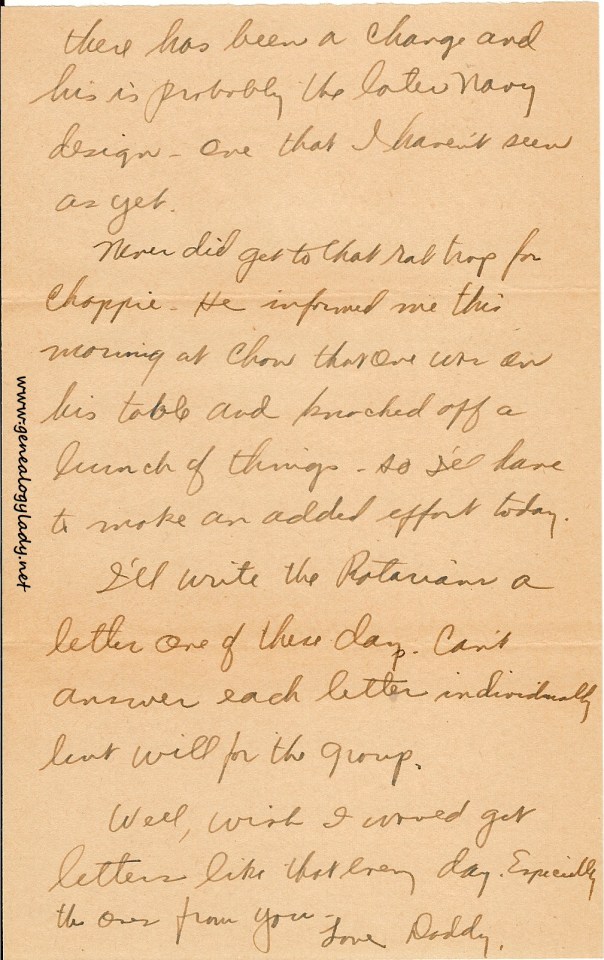 there has been a change and
his is probably the later Navy
design - one that I haven't seen
as yet.
Never did get to that rat trap for
Chappie - He informed me this
morning at Chow that one was on
his table and knocked off a
bunch of things - so I'll have
to make an added effort today.
I'll write the Rotarians a
letter one of these days. Can't
answer each letter individually
but will for the group.
Well, wish I would get
letters like that every day. Especially
the ones from you -
Love Daddy.
www.genealogylady.net